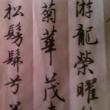 游龍榮曜
菊華茂春
松髣髴兮